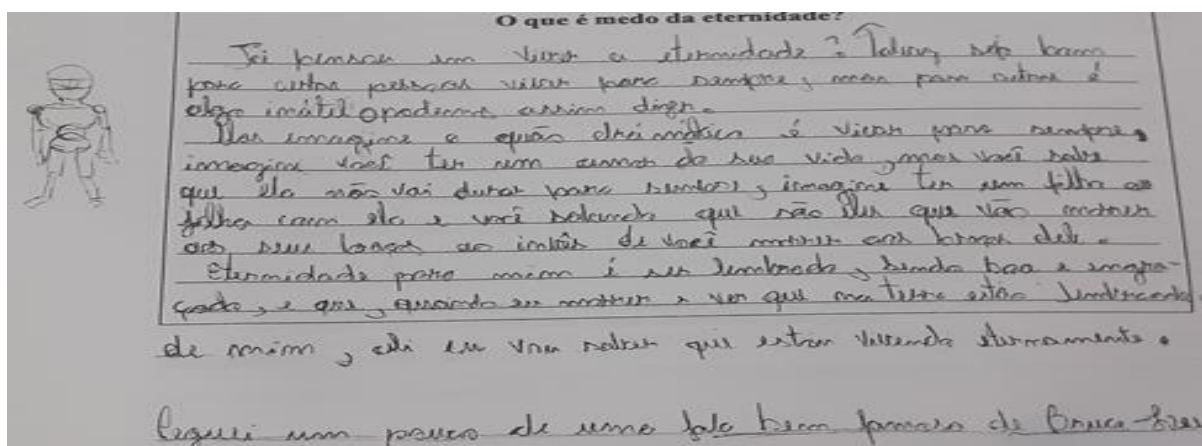 O que é medo da eternidade?
Já pensou em viver a eternidade? Talvez seja bom
para certas pessoas viver para sempre, mas para outras é
algo inútil podemos assim dizer.
Mas imagine o quão dramático é viver para sempre,
imagine você ter um amor da sua vida, mas você sabe
que ela não vai durar para sempre, imagine ter um filho ou
filha com ela e você sabendo que são eles que vão morrer
aos seus braços ao invés de você morrer aos braços dele.
Eternidade para mim é ser lembrado, sendo boa e engra-
çado, e que, quando eu morrer e ver que na terra estão lembrando
de mim, ali eu vou saber que estou vivendo eternamente.
Peguei um pouco de uma fala bem famosa de Bruce